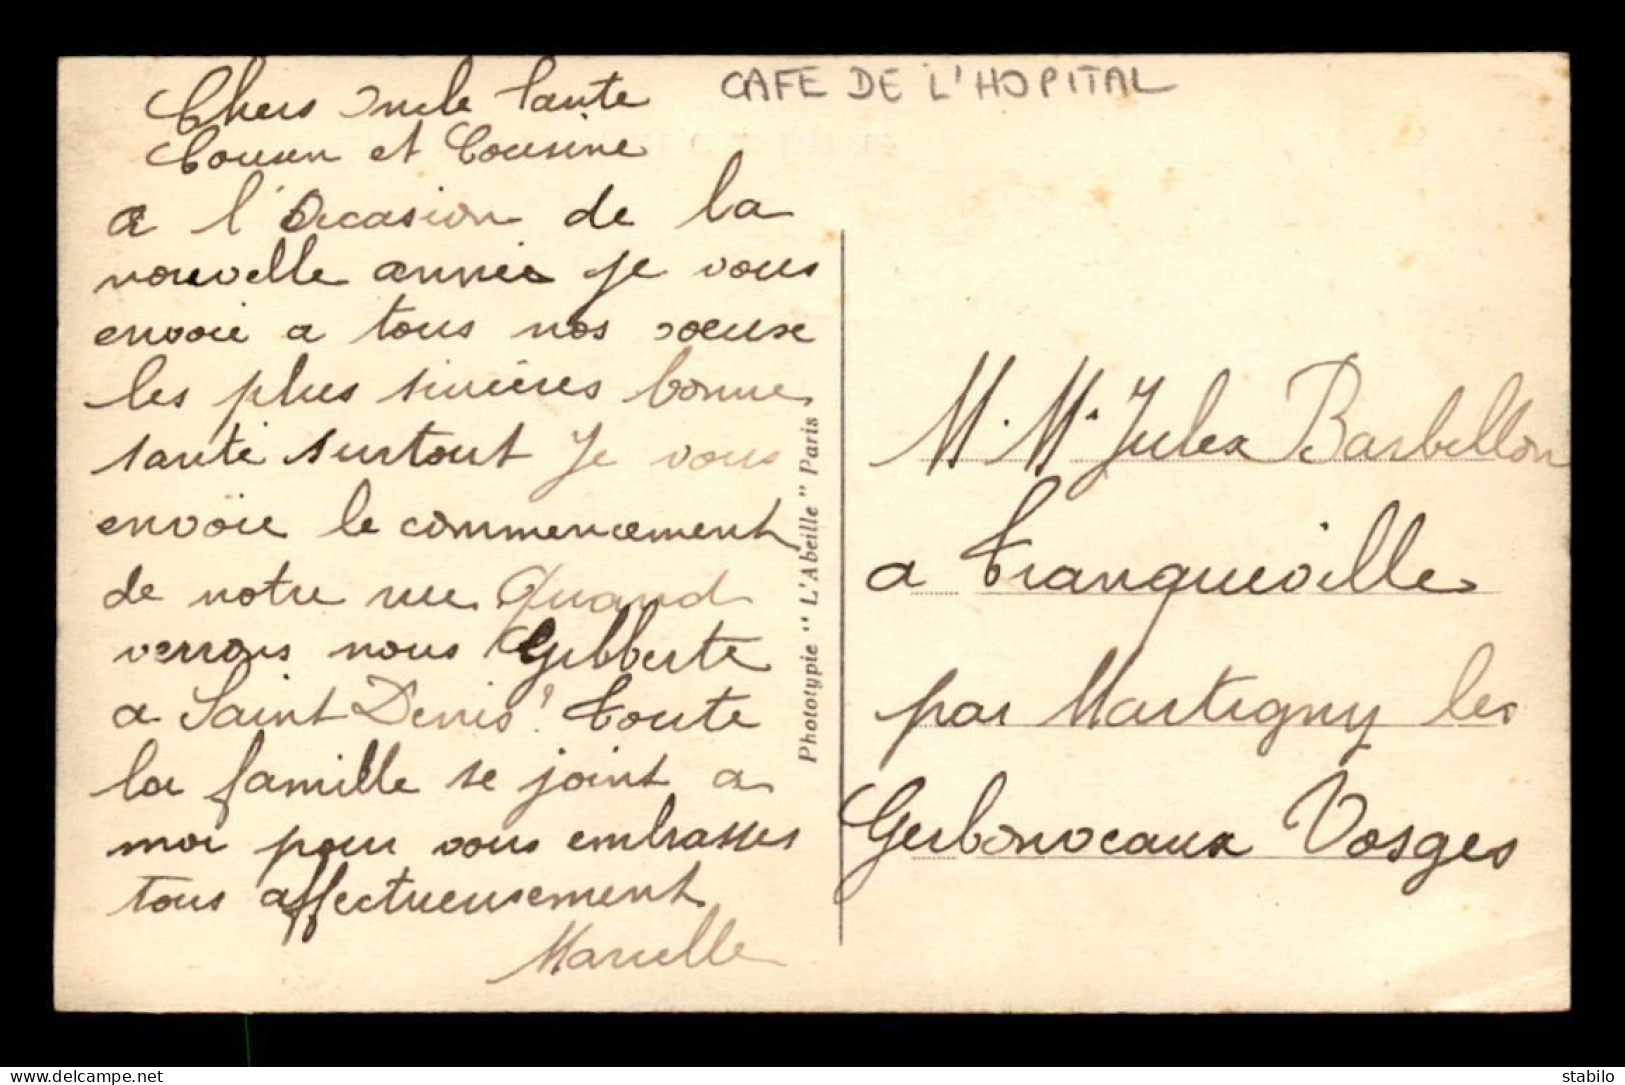 CAFE DE L'HOPITAL
Chers Oncle Tante
Cousin et Cousine
a l'Occasion de la
nouvelle année je vous
envoie a tous nos voeux
les plus sincères bonne
santé surtout Je vous
envoie le commencement
de notre rue Quand
verrons nous Gilberte
a Saint Denis? Toute
la famille se joint a
moi pour vous embrasses
tous affectueusement
Marcelle
Phototypie "L'Abeille" Paris
M. Mr Jules Barbellon
a Tranqueville
par Martigny les
Gerbonveaux Vosges
delcampe.net
stabilo